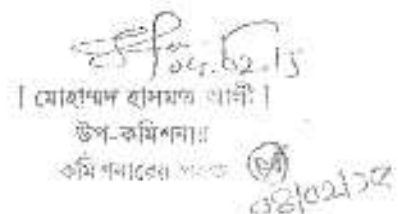 04.02.15
[ মোহাম্মদ হাসমত আলী ]
উপ-কমিশনার
কমিশনারের পক্ষে
০৪/০২/১৫